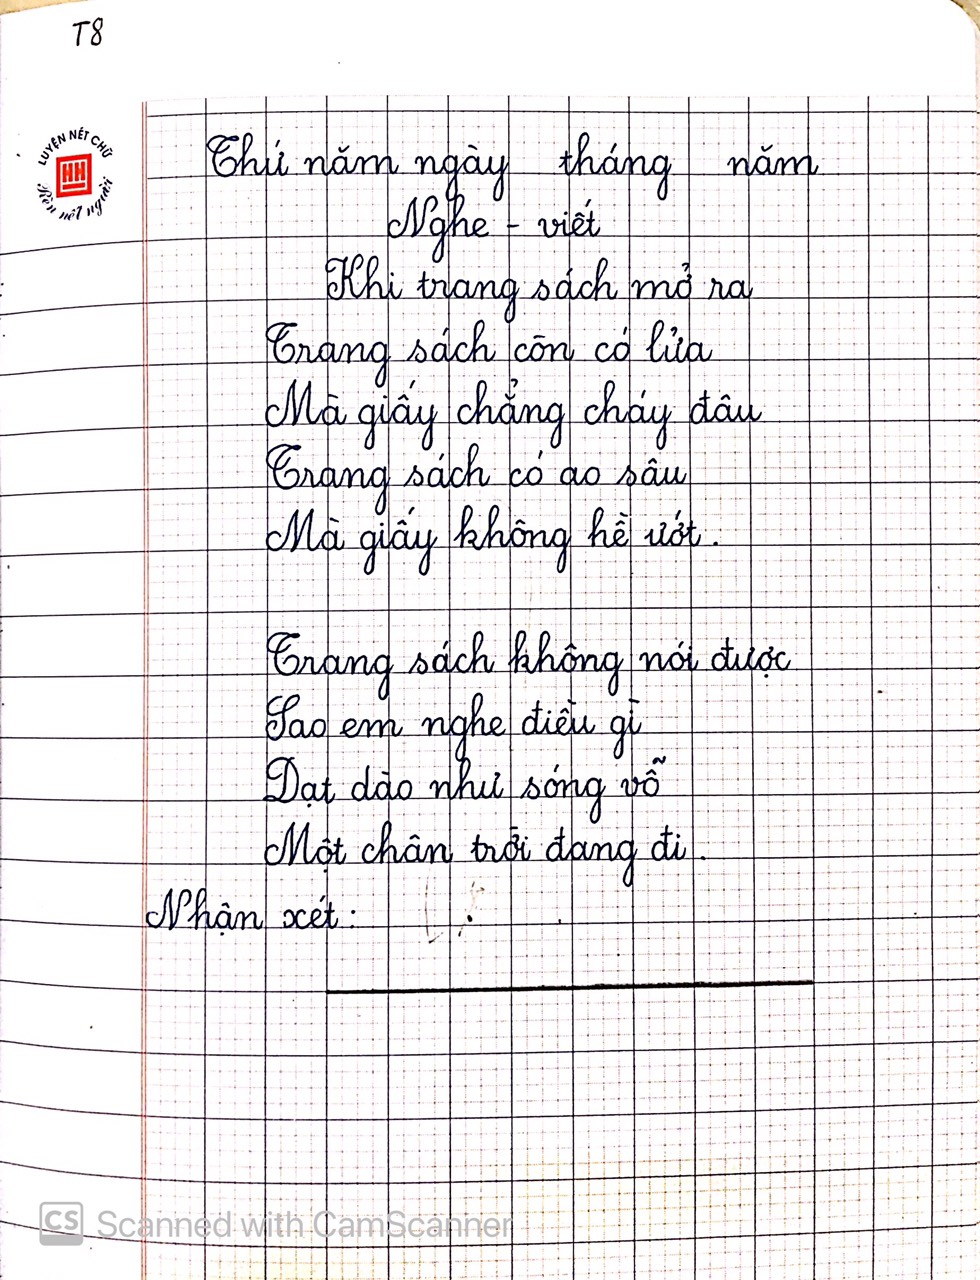 T8
LUYỆN NÉT CHỮ
HH
Rèn nết người
Thứ năm ngày tháng năm
Nghe - viết
Khi trang sách mở ra
Trang sách còn có lửa
Mà giấy chẳng cháy đâu
Trang sách có ao sâu
Mà giấy không hề ướt.
Trang sách không nói được
Sao em nghe điều gì
Dạt dào như sóng vỗ
Một chân trời đang đi.
Nhận xét:
CS Scanned with CamScanner